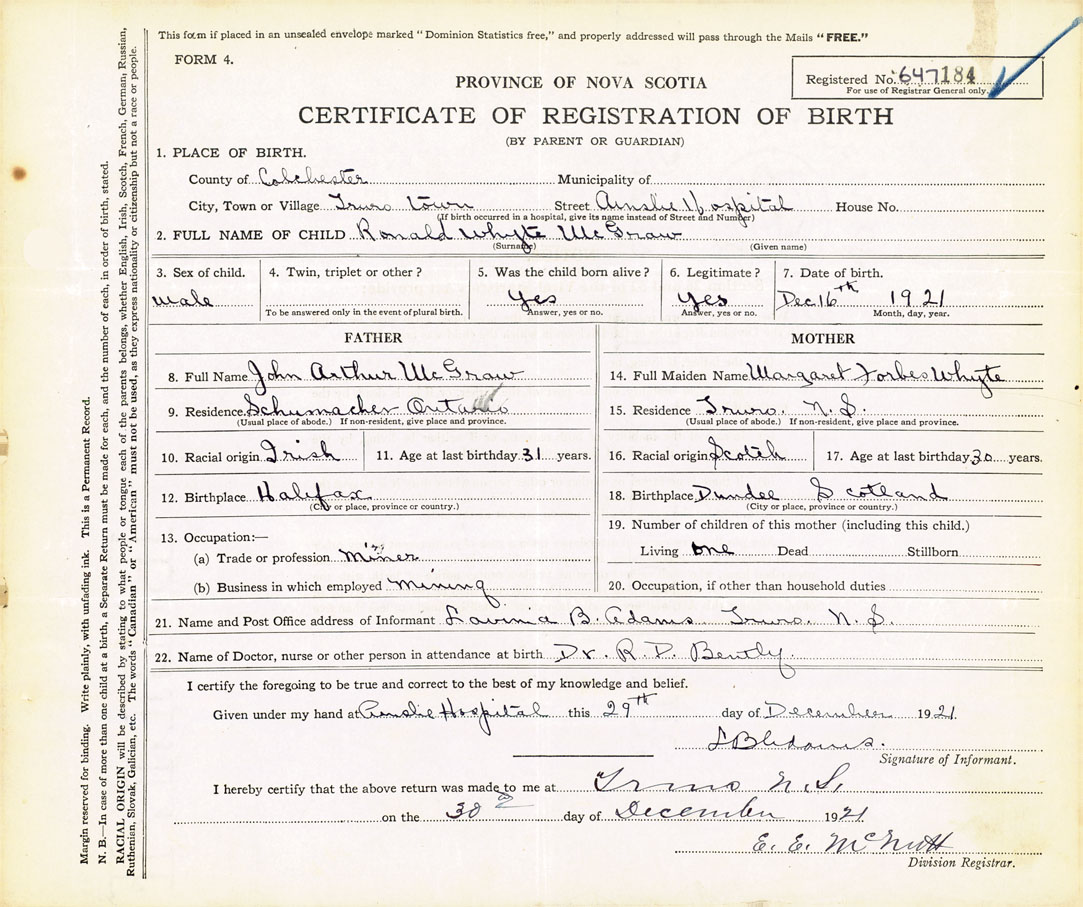 This form if placed in an unsealed envelope marked "Dominion Statistics free," and properly addressed will pass through the Mails "FREE."
FORM 4.
Registered No. 647184
For use of Registrar General only.
PROVINCE OF NOVA SCOTIA
CERTIFICATE OF REGISTRATION OF BIRTH
(BY PARENT OR GUARDIAN)
1. PLACE OF BIRTH.
County of Colchester Municipality of
City, Town or Village Truro town Street Ainslie Hospital House No.
(If birth occurred in a hospital, give its name instead of Street and Number)
2. FULL NAME OF CHILD Ronald Whyte McGraw
(Surname) (Given name)
3. Sex of child. 4. Twin, triplet or other? 5. Was the child born alive? 6. Legitimate? 7. Date of birth.
male yes yes Dec 16th 1921
To be answered only in the event of plural birth. Answer, yes or no. Answer, yes or no. Month, day, year.
FATHER MOTHER
8. Full Name John Arthur McGraw 14. Full Maiden Name Margaret Forbes Whyte
9. Residence Schumacher Ontario 15. Residence Truro. N.S.
(Usual place of abode.) If non-resident, give place and province. (Usual place of abode.) If non-resident, give place and province.
10. Racial origin Irish 11. Age at last birthday 31 years. 16. Racial origin Scotch 17. Age at last birthday 30 years.
12. Birthplace Halifax 18. Birthplace Dundee Scotland
(City or place, province or country.) (City or place, province or country.)
13. Occupation:— 19. Number of children of this mother (including this child.)
(a) Trade or profession Miner Living one Dead Stillborn
(b) Business in which employed Mining 20. Occupation, if other than household duties
21. Name and Post Office address of Informant Lavinia B. Adams Truro. N.S.
22. Name of Doctor, nurse or other person in attendance at birth Dr. R. D. Bently.
I certify the foregoing to be true and correct to the best of my knowledge and belief.
Given under my hand at Ainslie Hospital this 29th day of December 1921.
L B Adams.
Signature of Informant.
I hereby certify that the above return was made to me at Truro N.S.
on the 30 day of December 1921
E. E. McNutt
Division Registrar.
Margin reserved for binding. Write plainly, with unfading ink. This is a Permanent Record.
N. B.—In case of more than one child at a birth, a Separate Return must be made for each, and the number of each, in order of birth, stated.
RACIAL ORIGIN will be described by stating to what people or tongue each of the parents belongs, whether English, Irish, Scotch, French, German, Russian,
Ruthenian, Slovak, Galician, etc. The words "Canadian" or "American" must not be used, as they express nationality or citizenship but not a race or people.